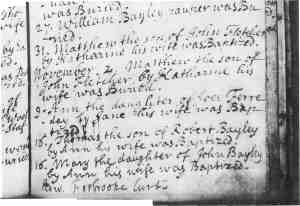 was Buried.
William Bayley pauper was Bu-
ried.
31. Matthew the son of John Fletcher
by Katharine his wife was Baptized.
November. 2. Matthew the son of
John Fletcher by Katharine his
wife was Buried.
9. Ann the daughter of
by Jane his wife was Bap-
tized.
the son of Robert Bayley
by Ann his wife was Baptized.
18. Mary the daughter of John Bayley
by Ann his wife was Baptized.
Curt.